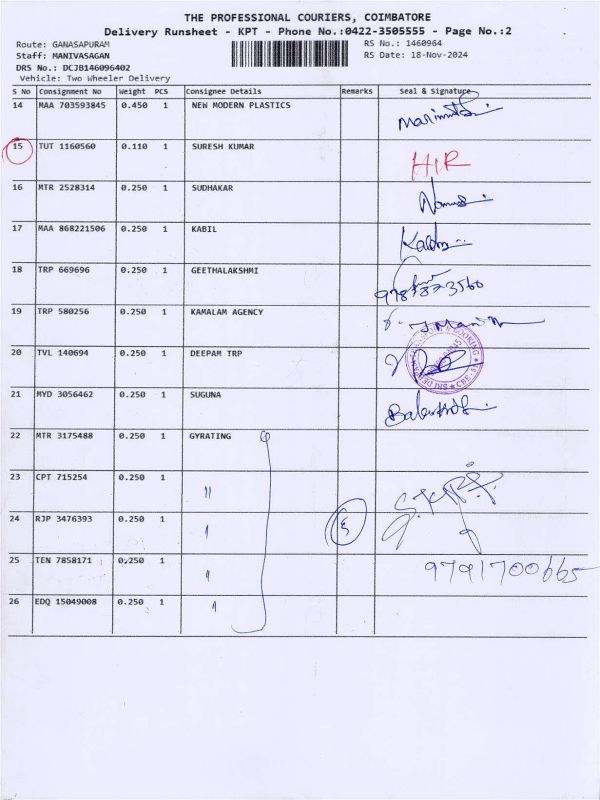 THE PROFESSIONAL COURIERS, COIMBATORE
Delivery Runsheet - KPT - Phone No.:0422-3505555 - Page No.:2
Route: GANASAPURAM
RS No.: 1460964
Staff: MANIVASAGAN
RS Date: 18-Nov-2024
DRS No.: DCJB146096402
Vehicle: Two Wheeler Delivery
S No Consignment No Weight PCS Consignee Details Remarks Seal & Signature
14 MAA 703593845 0.450 1 NEW MODERN PLASTICS
15 TUT 1160560 0.110 1 SURESH KUMAR HIR
16 MTR 2528314 0.250 1 SUDHAKAR
17 MAA 868221506 0.250 1 KABIL
18 TRP 669696 0.250 1 GEETHALAKSHMI
19 TRP 580256 0.250 1 KAMALAM AGENCY
20 TVL 140694 0.250 1 DEEPAM TRP
21 MYD 3056462 0.250 1 SUGUNA
22 MTR 3175488 0.250 1 GYRATING
23 CPT 715254 0.250 1 "
24 RJP 3476393 0.250 1 " 5
25 TEN 7858171 0.250 1 " 9791700665
26 EDQ 15049008 0.250 1 "